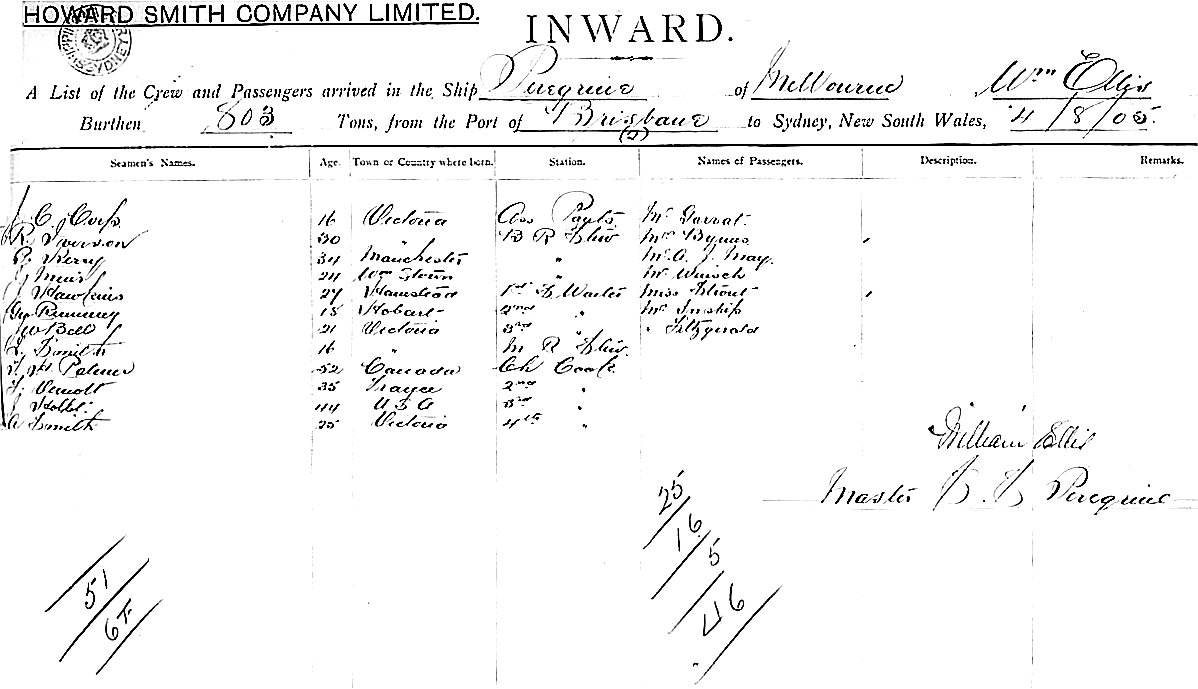 HOWARD SMITH COMPANY LIMITED.
INWARD.
A List of the Crew and Passengers arrived in the Ship Peregrine of Melbourne Wm Ellis
Burthen 803 Tons, from the Port of Brisbane to Sydney, New South Wales, 4/8/05.
(2)
Seamen's Names. Age. Town or Country where born. Station. Names of Passengers. Description. Remarks.
C. Corp 16 Victoria Ass Pants Mr Garrat
R. Iverson 30 " B R Stew Mr Byrnes
P. Kerry 34 Manchester " Mr A. J. May.
J Muir 24 Wm Town " Mr
J Hawkins 27 1st S Waiter Miss Strout
Geo 18 Hobart 2nd " Mr Inship
W Bell 21 Victoria 3rd " " Fitzgerald
Smith 16 " M R Stew.
Palmer 52 Canada Ch Cook
35 2nd "
J 44 U S A 3rd "
A Smith 25 Victoria 4th "
William Ellis
Master S. S Peregrine
25
16
5
46
51
67